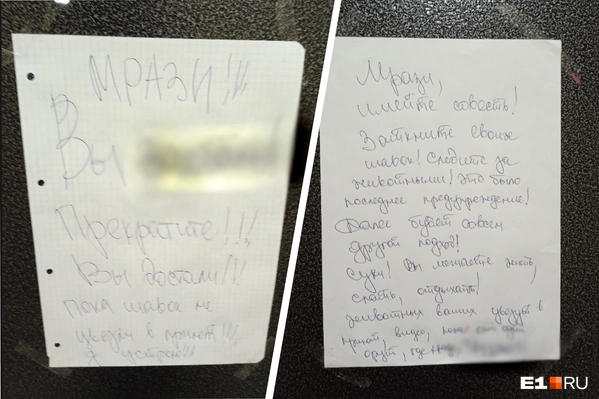 МРАЗИ!!!
В
Вы
Прекратите!!!
Вы достали!!!
пока шавок не
увезли в приют!!!
Я устрою!!!
Мрази,
имейте совесть!
Заткните своих
шавок! Следите за
животными! Это было
последнее предупреждение!
Далее будет совсем
другой подход!
Суки! Вы мешаете жить,
спать, отдыхать!
животных ваших увезут в
приют, видео,
орут, где
E1.RU